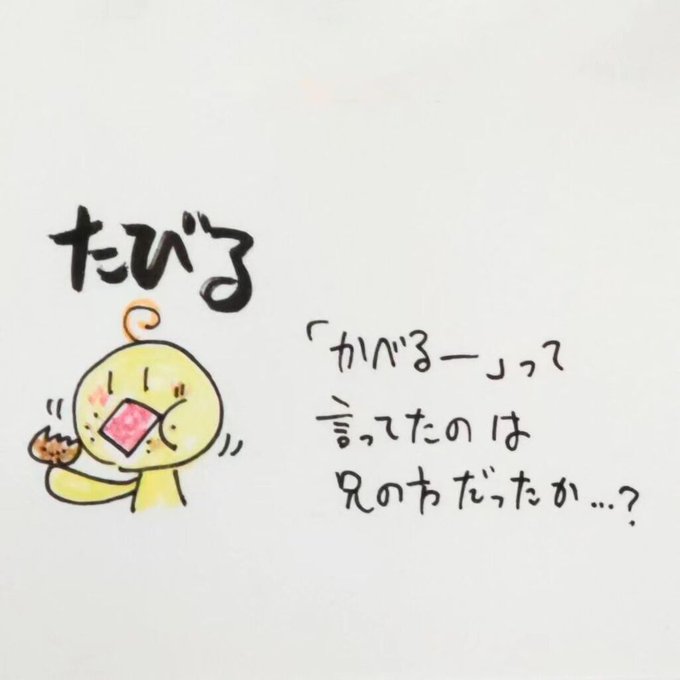 たびる
「かべるー」って
言ってたのは
兄の方だったか…?